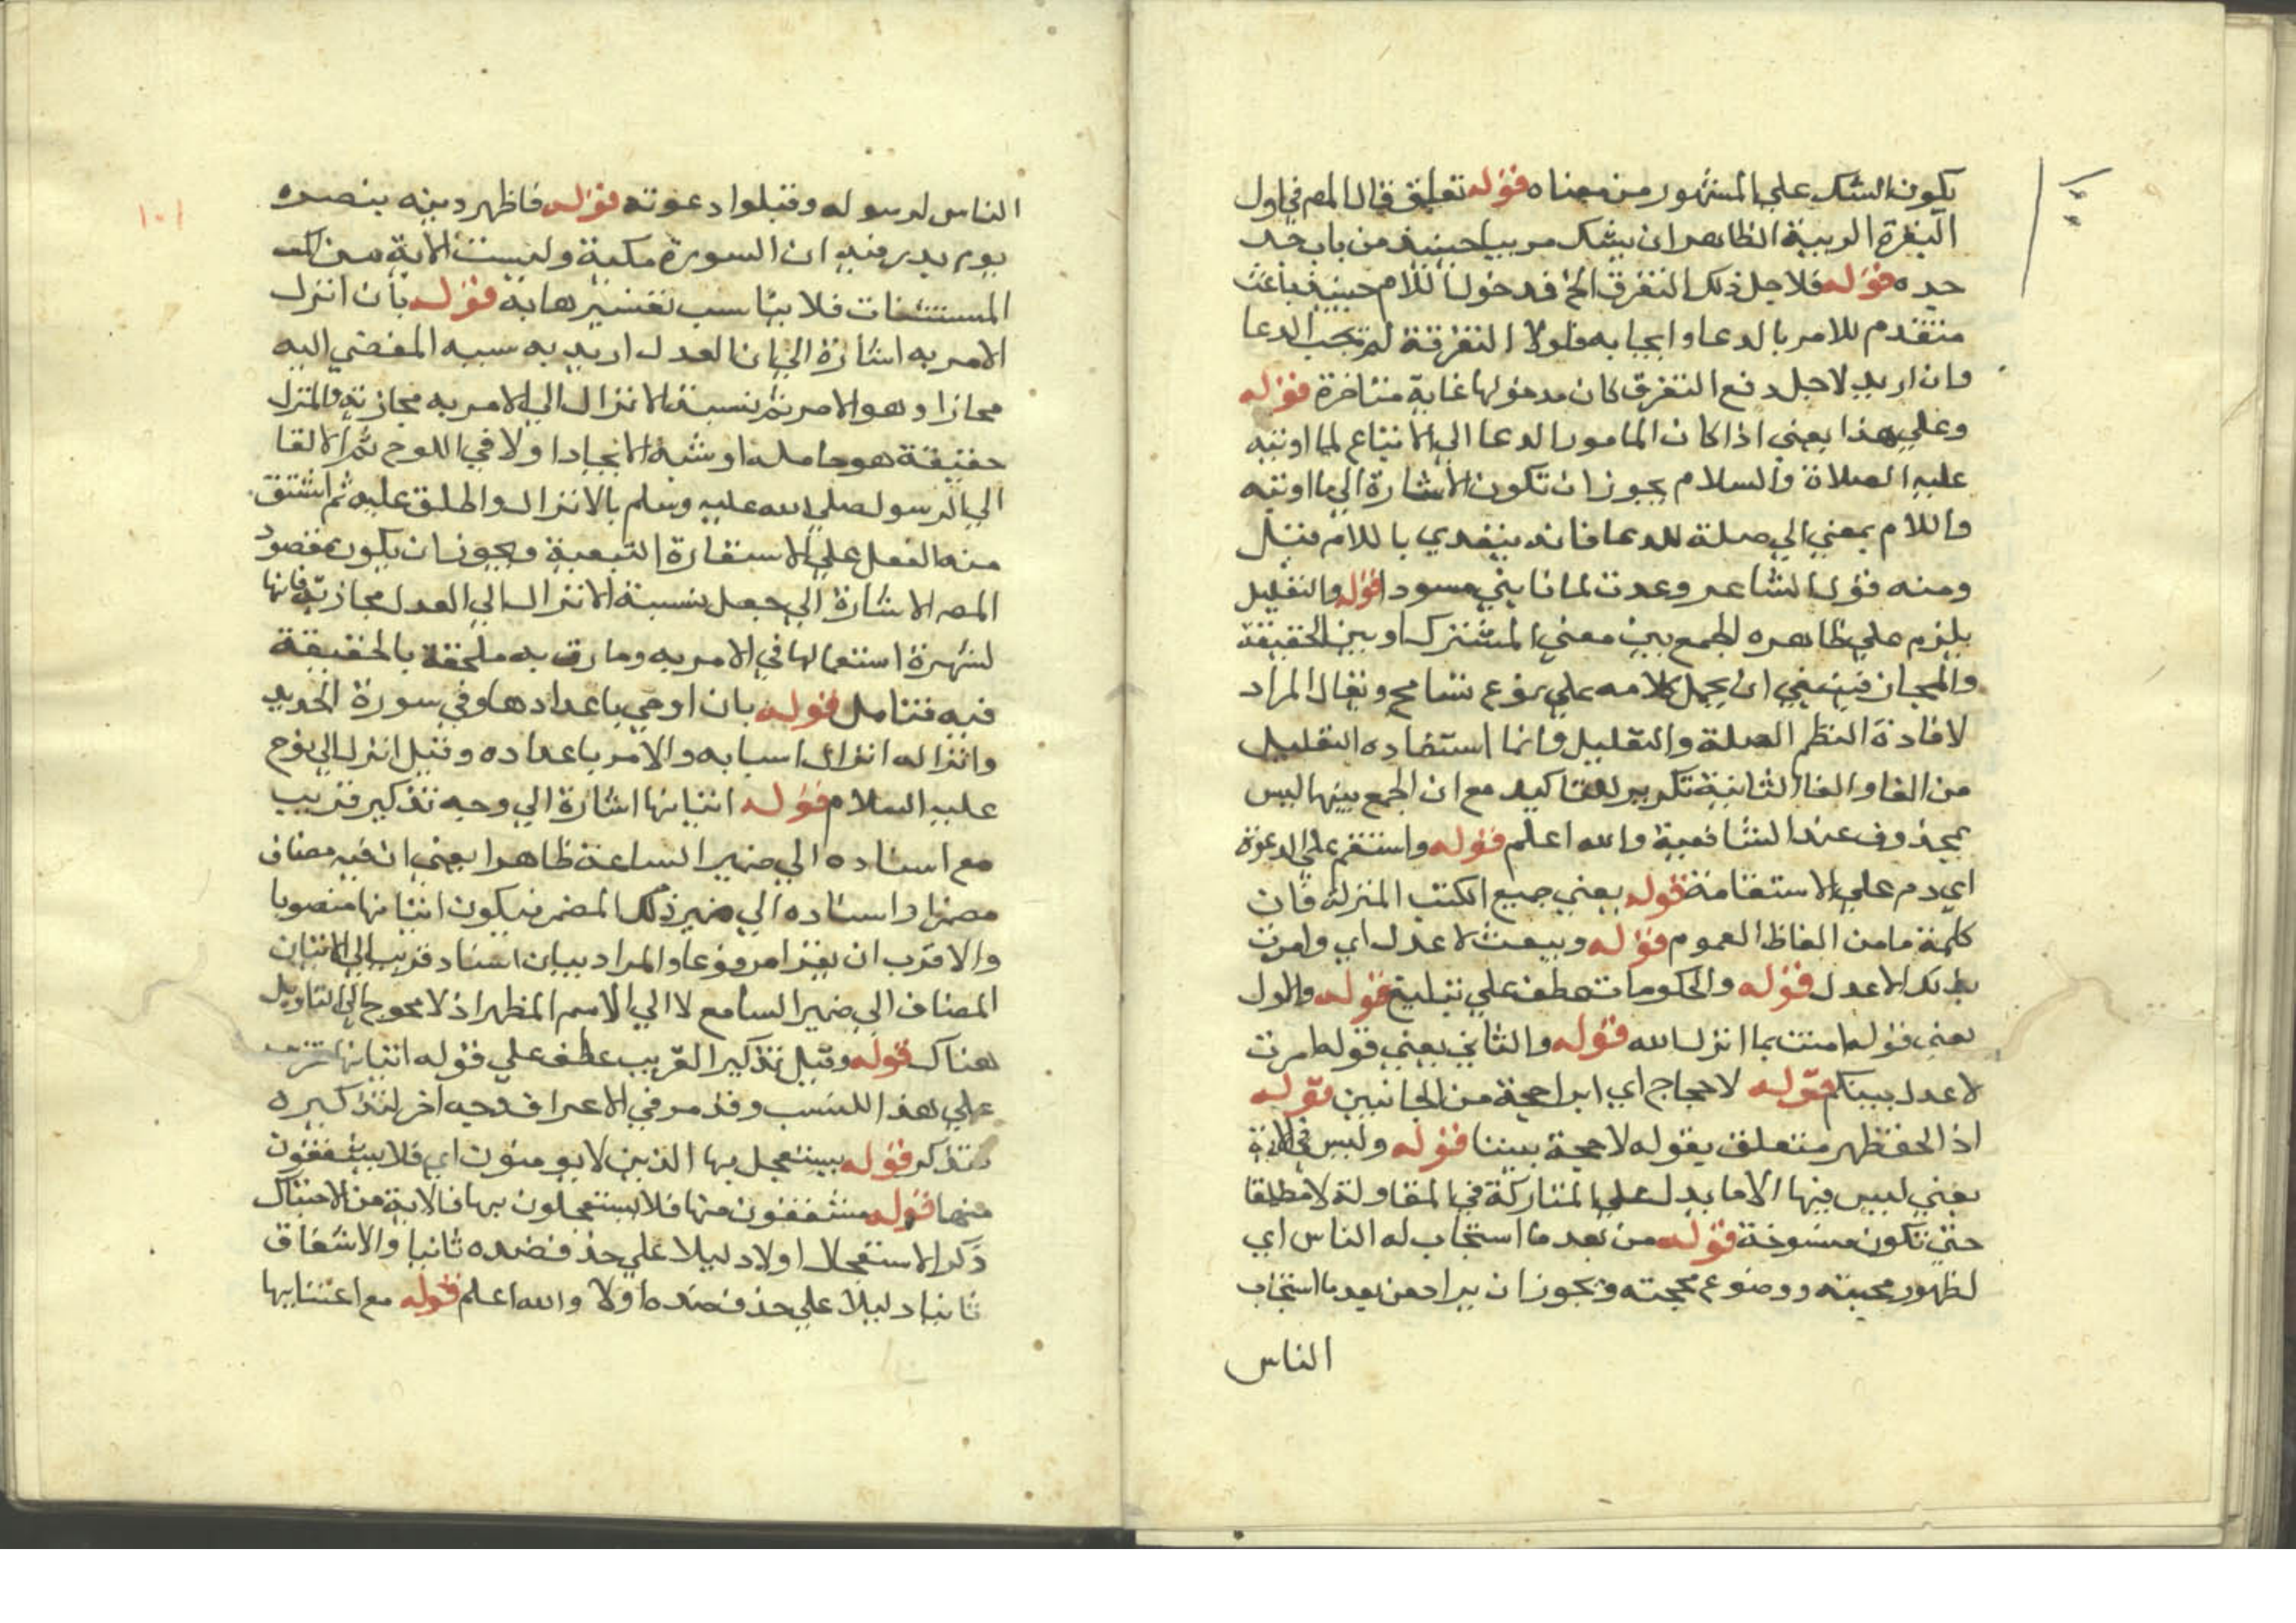 يكون الشك على المشهور من معناه قوله تعلق قال المص في اول
البقرة الريبة الظاهر ان يشك مريبا حينئذ من باب جد
جده قوله فلاجل ذلك التفرق الخ فمدخول اللام حينئذ باعث
متقدم للامر بالدعا وايجابه فلولا التفرقة لم تجب الدعا
وان اريد لاجل دفع التفرق كان مدخولها غاية متاخرة قوله
وعلى هذا يعني اذا كان المامور الدعا الى الاتباع لما اوتيه
عليه الصلاة والسلام يجوز ان تكون الاشارة الى ما اوتيه
واللام بمعنى الى صلة للدعا فانه يتعدي باللام قيل
ومنه قول الشاعر وعدت لمانابني مسودا قوله والتعليل
يلزم على ظاهره الجمع بين معني المشترك او بين الحقيقة
والمجاز فينبغي ان يحمل كلامه على نوع تسامح ويقال المراد
لافادة النظم الصلة والتعليل وانما استفاده التعليل
من الفا والفا الثانية تكرير للتاكيد مع ان الجمع بينها ليس
بمحذوف عند الشافعية والله اعلم قوله واستقم على الدعوة
اي دم على الاستقامة قوله يعني جميع الكتب المنزلة فان
كلمة ما من الفاظ العموم قوله وبيعث لاعدل اي وامرت
بذلك لاعدل قوله والحكومات عطف على تبليغ قوله والاول
يعني قوله امنت بما انزل الله قوله والثاني يعني قوله امرت
لاعدل بينكم قوله لا حجاج اي ايراد حجة من الجانبين قوله
اذ الحق ظهر متعلق بقوله لا حجة بيننا قوله وليس في الاية
يعني ليس فيها الا ما يدل على المتاركة في المقاولة لا مطلقا
حتى تكون منسوخة قوله من بعد ما استجاب له الناس اي
لظهور محبته ووضوع محجته ويجوز ان يراد من بعد ما استجاب
الناس
١٠١
الناس لرسوله وقبلوا دعوته قوله فاظهر دينه بنصره
يوم بدر فيه ان السورة مكية وليست الاية من تلك
المستثنات فلا يناسب تفسيرها به قوله بان انزل
الامر به اشارة الى ان العدل اريد به سببه المفضي اليه
مجازا وهو الامر ثم نسبة الانزال الى الامر به مجازية والمنزل
حقيقة هو حامله او شبه الايجاد اولا في اللوح ثم الالقا
الى الرسول صلى الله عليه وسلم بالانزال واطلق عليه ثم اشتق
منه الفعل على الاستعارة التبعية ويجوز ان يكون مقصود
المص الاشارة الى جعل نسبة الانزال الى العدل مجازية فانها
لشهرة استعمالها في الامر به وما رق به ملحقة بالحقيقة
فيه فتامل قوله بان اوحي باعدادها وفي سورة الحديد
وانزاله انزال اسبابه والامر باعداده وقيل انزل الى نوح
عليه السلام قوله اتيانها اشارة الى وجه تذكير قريب
مع اسناده الى ضمير الساعة ظاهرا يعني ان فيه مضاف
مضمرا واسناده الى ضمير ذلك المضمر فيكون اتيانها منصوبا
والاقرب ان يقرا مرفوعا والمراد بيان اسناد قريب الى الاتيان
المضاف الى ضمير السامع لا الى الاسم المظهر اذ لا محوج الى التاويل
هناك قوله وقيل تذكير القريب عطف على قوله اتيانها
على هذا للنسب وقد مر في الاعراف وجه اخر لتذكيره
فتذكر قوله يستعجل بها الذين لا يومنون اي فلا يشفقون
منها قوله مشفقون منها فلا يستعجلون بها فالاية من الاحتباك
ذكر الاستعجال اولا دليلا على حذف ضده ثانيا والاشفاق
ثانيا دليلا على حذف ضده اولا والله اعلم قوله مع اعتنا بها